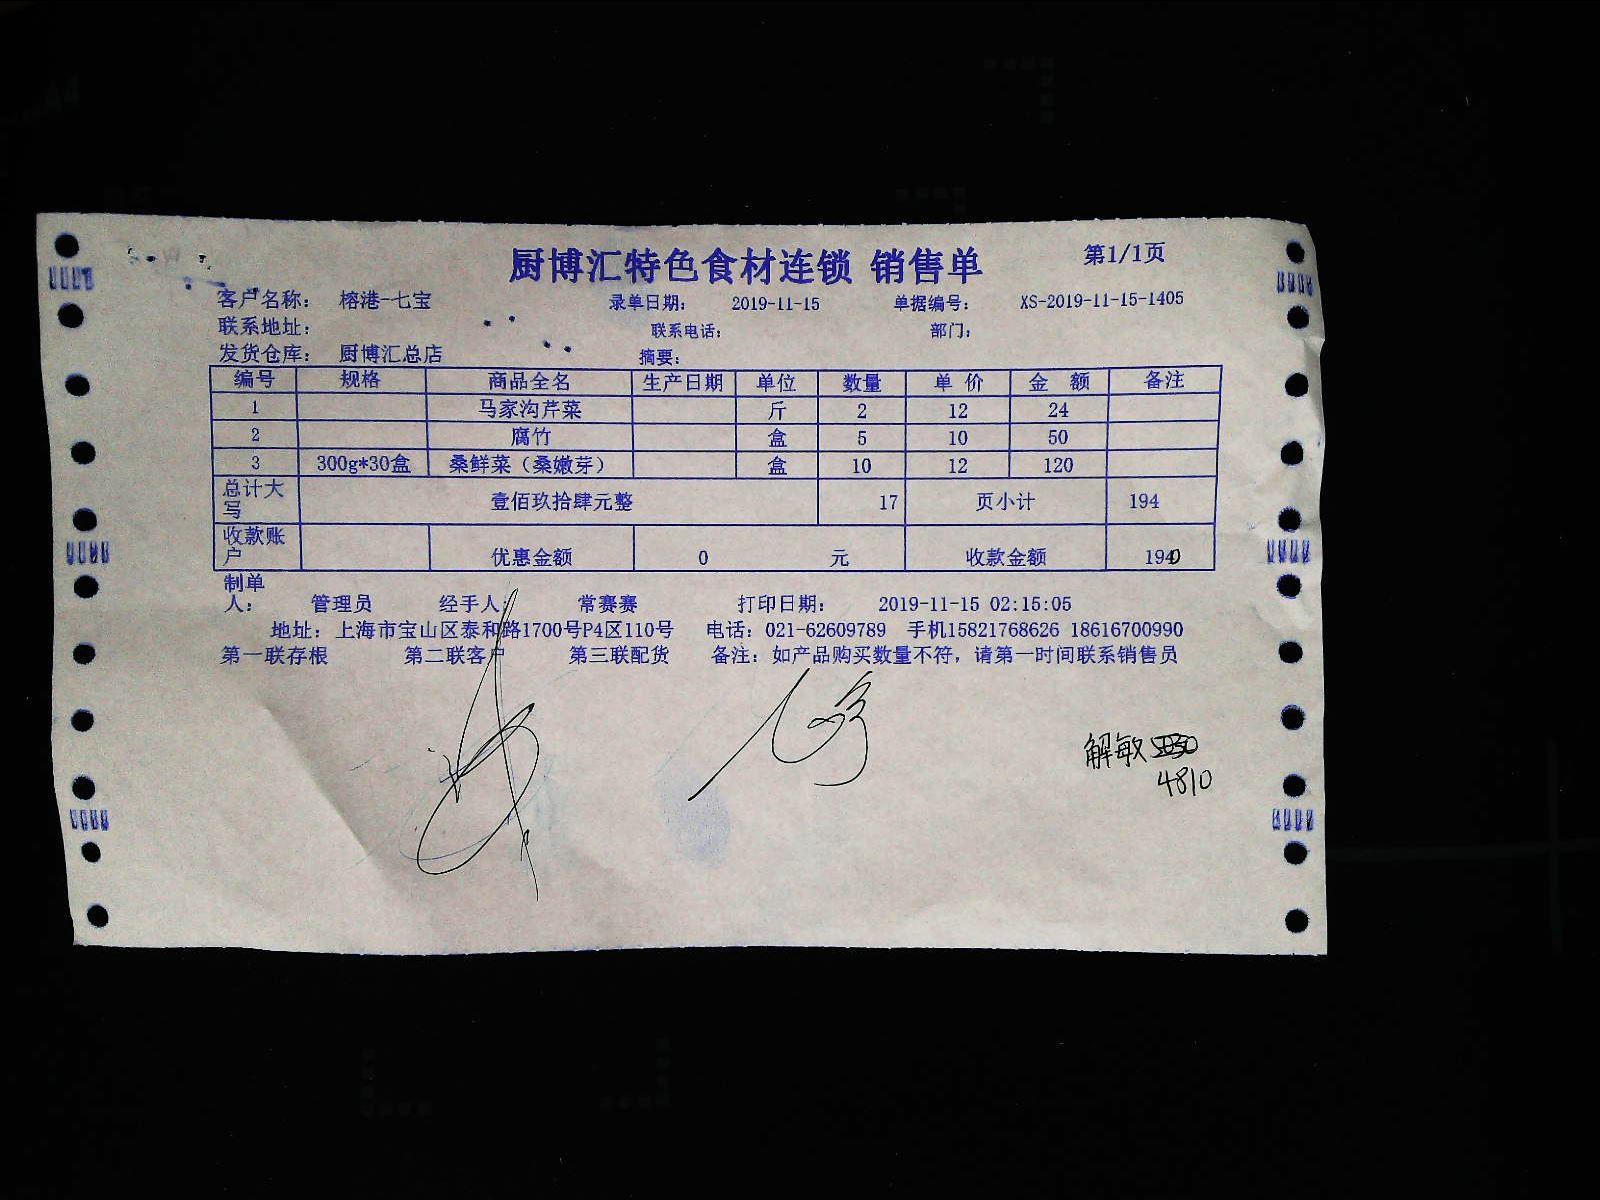 厨博汇特色食材连锁 销售单 第1/1页
客户名称： 榕港-七宝 录单日期： 2019-11-15 单据编号： XS-2019-11-15-1405
联系地址： 联系电话： 部门：
发货仓库： 厨博汇总店 摘要：
编号 规格 商品全名 生产日期 单位 数量 单 价 金 额 备注
1 马家沟芹菜 斤 2 12 24
2 腐竹 盒 5 10 50
3 300g*30盒 桑鲜菜（桑嫩芽） 盒 10 12 120
总计大写 壹佰玖拾肆元整 17 页小计 194
收款账户 优惠金额 0 元 收款金额 194
制单人： 管理员 经手人： 常赛赛 打印日期： 2019-11-15 02:15:05
地址：上海市宝山区泰和路1700号P4区110号 电话：021-62609789 手机15821768626 18616700990
第一联存根 第二联客户 第三联配货 备注：如产品购买数量不符，请第一时间联系销售员
解敏
4810